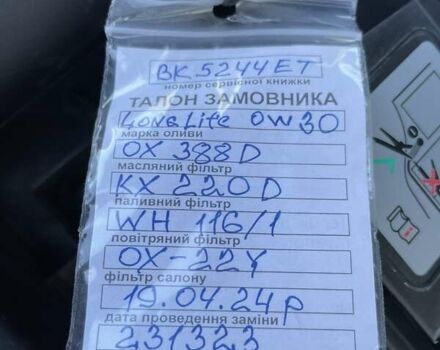 ВК5244ЕТ
номер сервісної книжки
ТАЛОН ЗАМОВНИКА
LongLife 0W30
марка оливи
OX 388D
масляний фільтр
KX 220D
паливний фільтр
WH 116/1
повітряний фільтр
OX-22Y
фільтр салону
19.04.24р
дата проведення заміни
231323